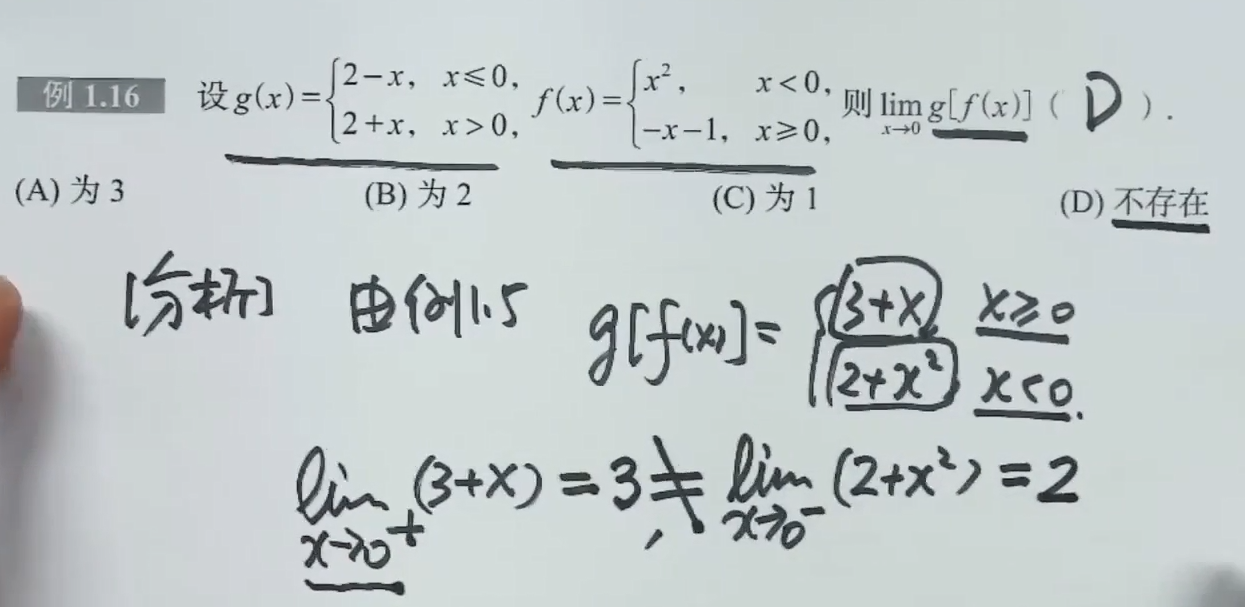 例 1.16 设 g(x)={2-x, x≤0, 2+x, x>0, f(x)={x², x<0, -x-1, x≥0, 则 lim x→0 g[f(x)] ( D ).
(A) 为 3 (B) 为 2 (C) 为 1 (D) 不存在
[分析] 由例1.5 g[f(x)]={3+x, x≥0 2+x² x<0.
lim x→0⁺ (3+x) = 3 ≠ lim x→0⁻ (2+x²) = 2